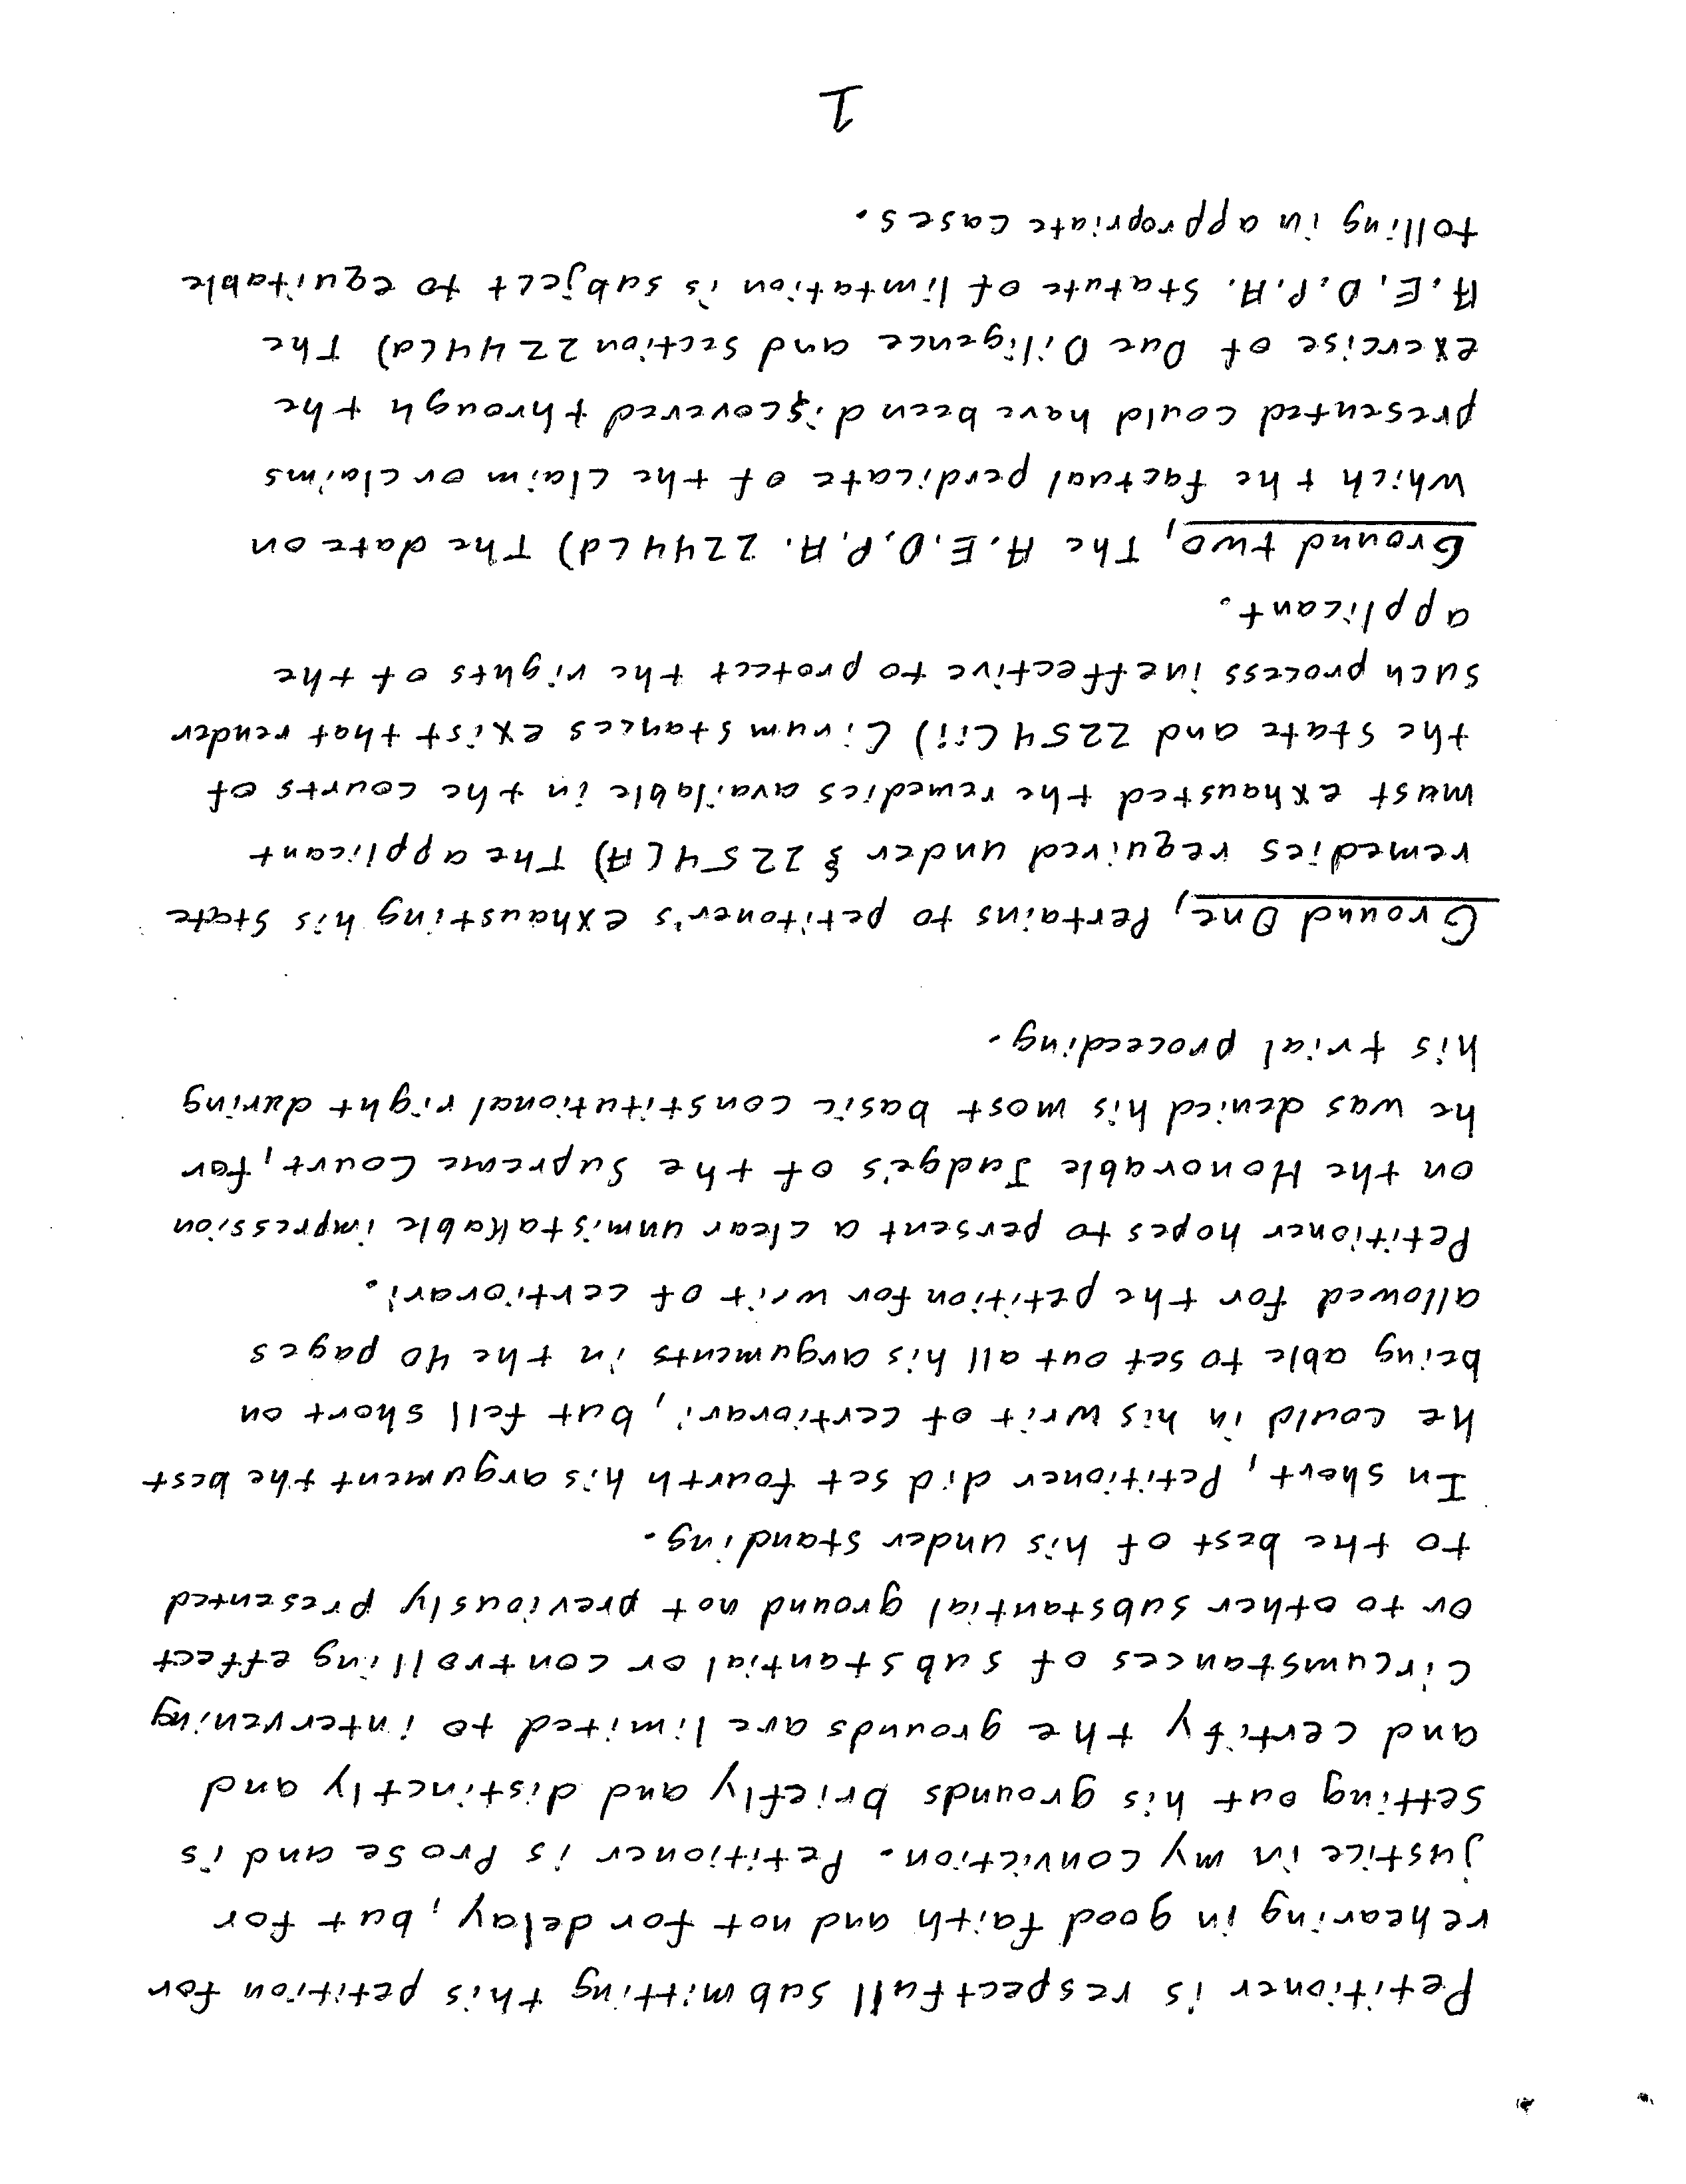 Petitioner is respectfull submitting this petition for
rehearing in good faith and not for delay, but for
justice in my conviction. Petitioner is Pro se and is
setting out his grounds briefly and distinctly and
and certify the grounds are limited to intervening
circumstances of substantial or controlling effect
or to other substantial ground not previously presented
to the best of his under standing.
In short, Petitioner did set fourth his argument the best
he could in his writ of certiorari, but fell short on
being able to set out all his arguments in the 40 pages
allowed for the petition for writ of certiorari.
Petitioner hopes to persent a clear unmistakable impression
on the Honorable Judge's of the Supreme Court, for
he was denied his most basic constitutional right during
his trial proceeding.
Ground One, Pertains to petitoner's exhausting his State
remedies required under § 2254(A) The applicant
must exhausted the remedies available in the courts of
the State and 2254(ii) Cirumstances exist that render
such process ineffective to protect the rights of the
applicant.
Ground two, The A.E.D.P.A. 2244(d) The date on
which the factual perdicate of the claim or claims
presented could have been discovered through the
exercise of Due Diligence and section 2244(d) The
A.E.D.P.A. Statute of limtation is subject to equitable
tolling in appropriate cases.
1